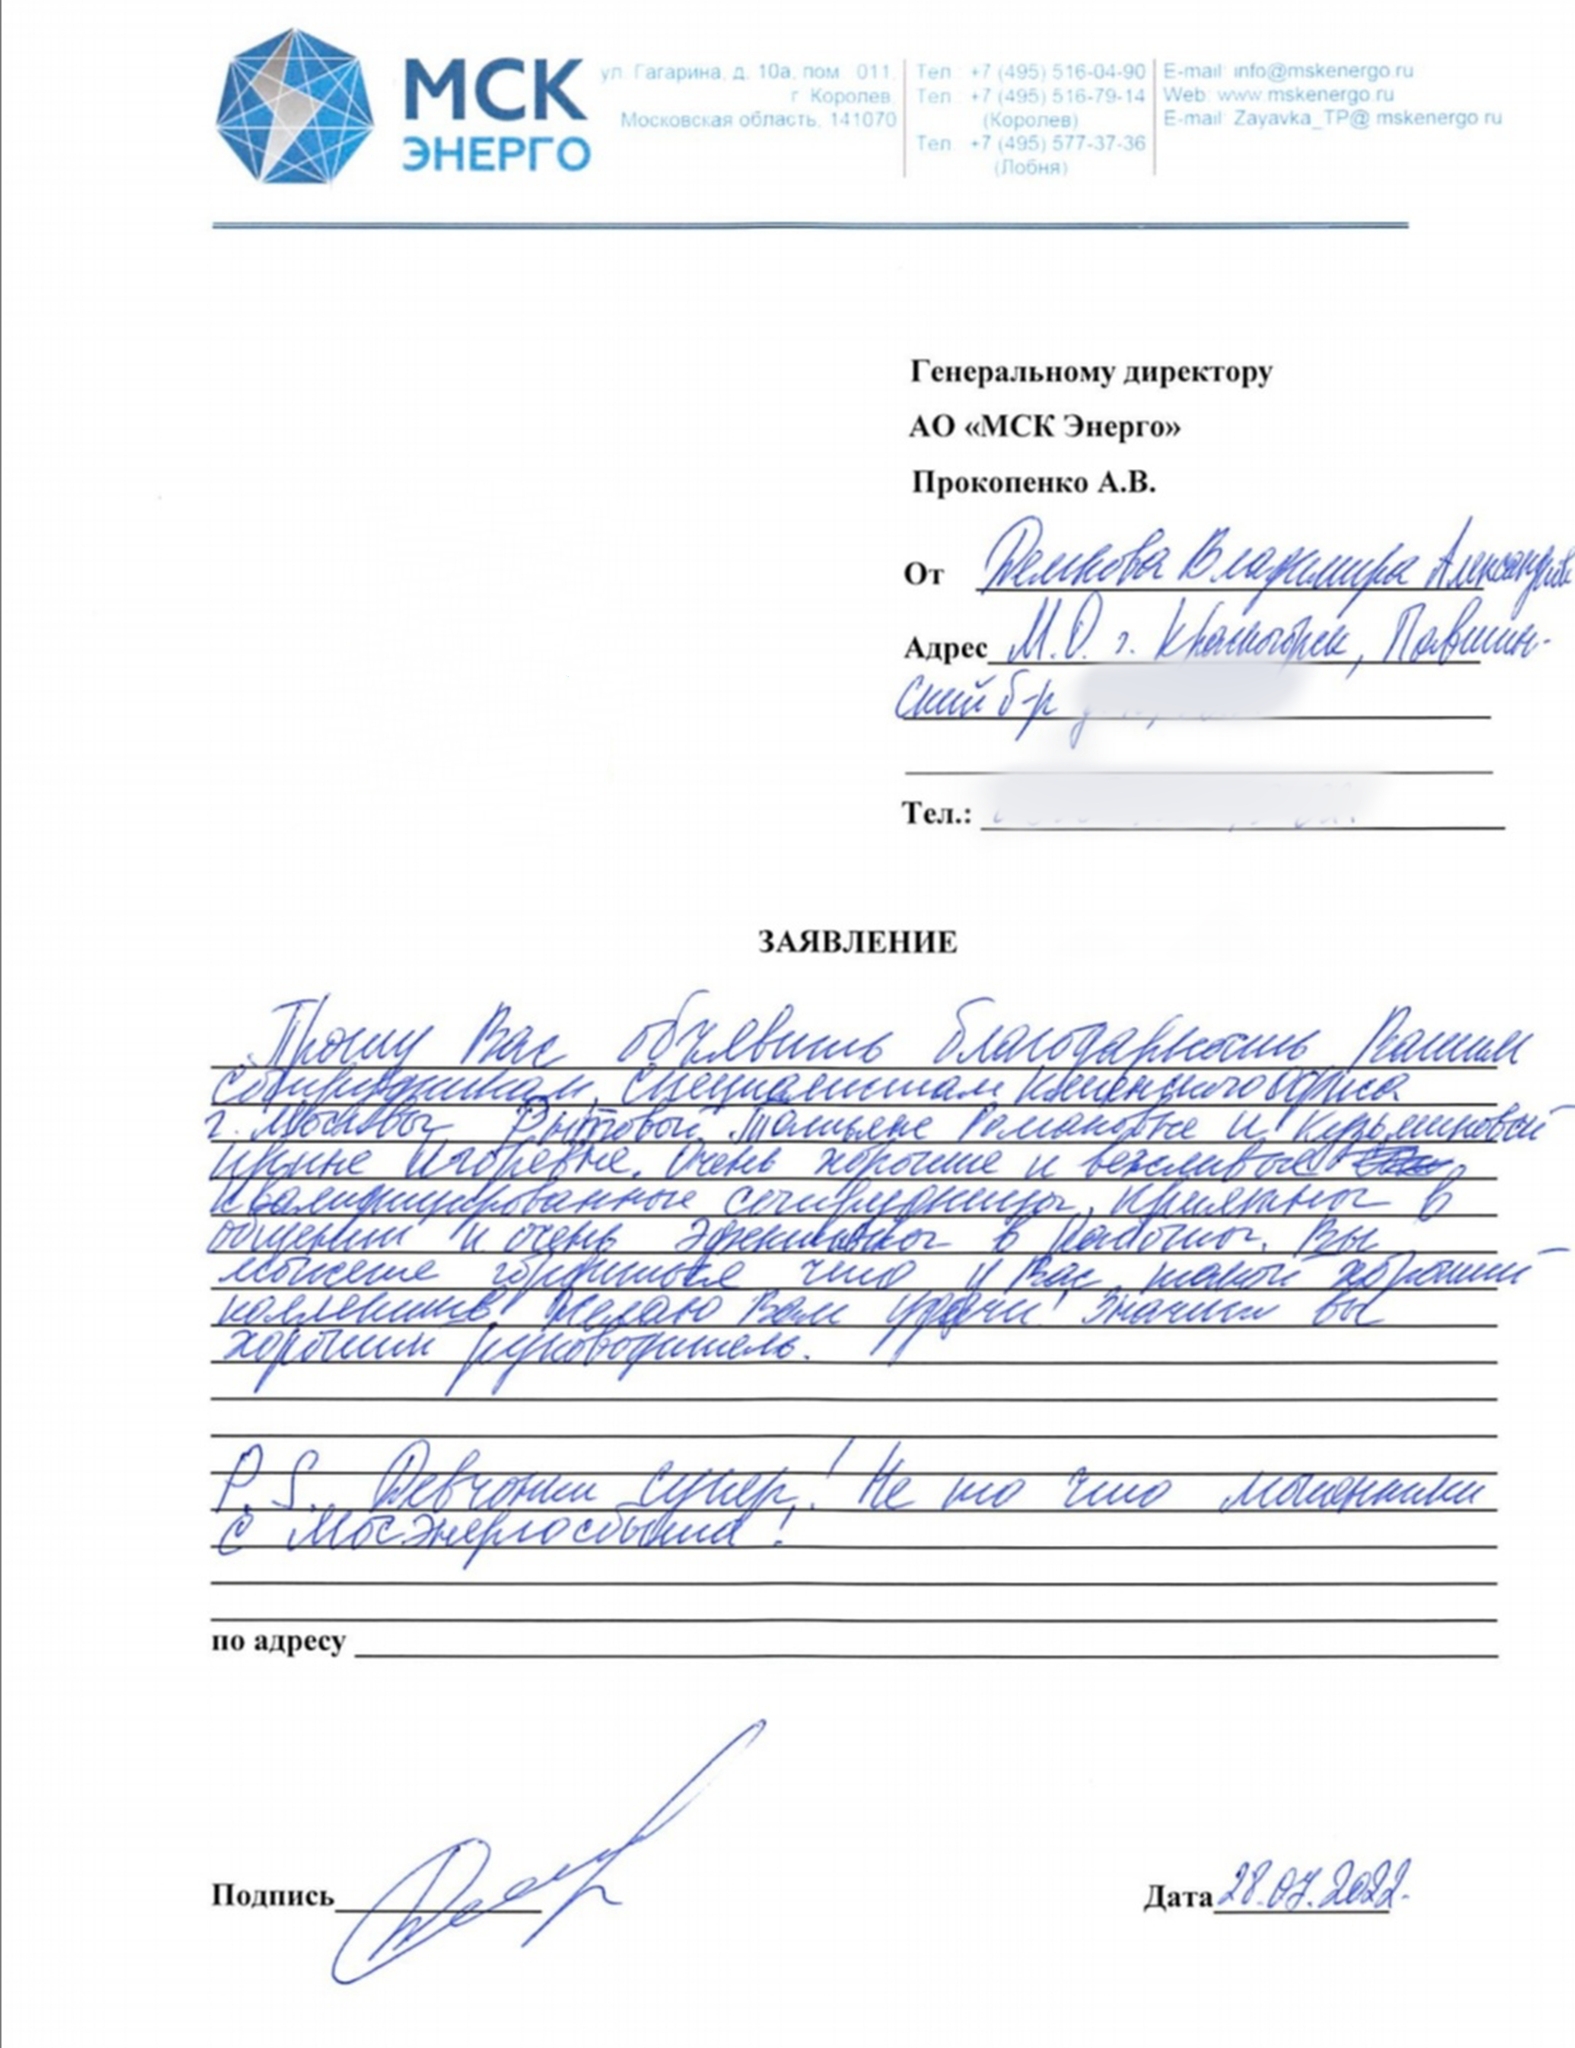 МСК
ЭНЕРГО
ул. Гагарина, д. 10а, пом. 011,
г. Королев,
Московская область, 141070
Тел.: +7 (495) 516-04-90
Тел.: +7 (495) 516-79-14
(Королев)
Тел.: +7 (495) 577-37-36
(Лобня)
E-mail: info@mskenergo.ru
Web: www.mskenergo.ru
E-mail: Zayavka_TP@ mskenergo.ru
Генеральному директору
АО «МСК Энерго»
Прокопенко А.В.
От Демкова Владимира
Адрес М.О. г. Красногорск, Павшин-
ский б-р
Тел.:
ЗАЯВЛЕНИЕ
Прошу Вас объявить благодарность Вашим
сотрудникам, специалистам клиентского офиса
г. Москвы, Татьяне Романовне и Кузьминовой
Ирине Игоревне. Очень хорошие и вежливые
квалифицированные сотрудницы, приятные в
общении и очень эффективные в работе. Вы
можете гордиться что у Вас такой хороший
коллектив! Желаю Вам удачи! Значит вы
хороший руководитель.
P.S. Девчонки супер! Не то что мошенники
с Мосэнергосбыта!
по адресу
Подпись
Дата 28.07.2022.